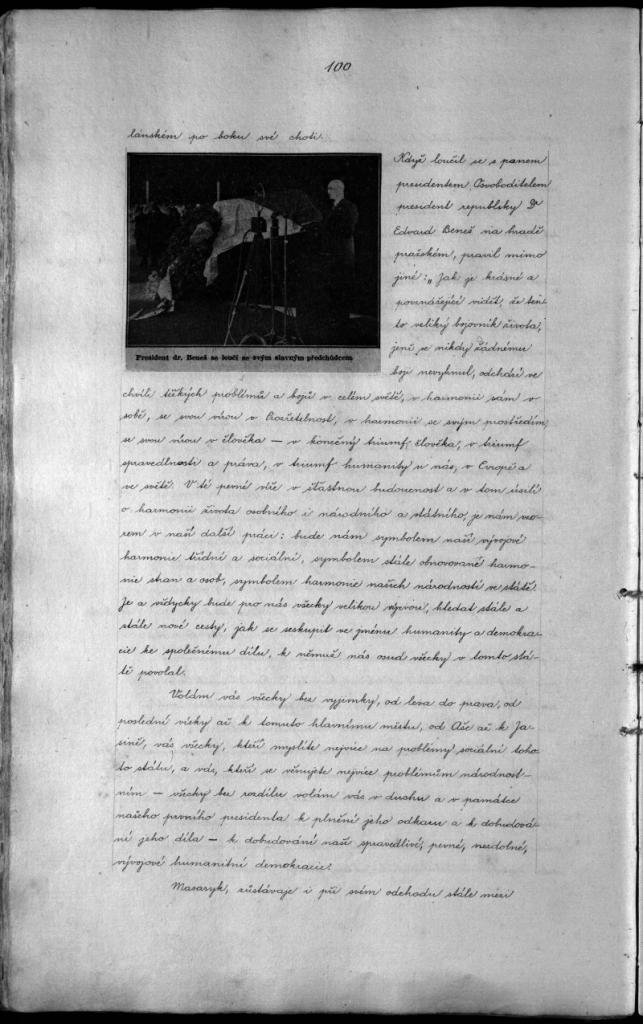 100
lánském po boku své choti.
President dr. Beneš se loučí se svým slavným předchůdcem
Když loučil se s panem
presidentem Osvoboditelem
president republiky Dr
Edvard Beneš na hradě
pražském, pravil mimo
jiné: „Jak je krásné a
povznášející vidět, že ten-
to veliký bojovník života,
jenž se nikdy žádnému
boji nevyhnul, odchází ve
chvíli těžkých problémů a bojů v celém světě, v harmonii sám v
sobě, se svou vírou v Prozřetelnost, v harmonii se svým prostředím,
se svou vírou v člověka — v konečný triumf člověka, v triumf
spravedlnosti a práva, v triumf humanity u nás, v Evropě a
ve světě. V té pevné víře v šťastnou budoucnost a v tom úsilí
o harmonii života osobního i národního a státního, je nám vzo-
rem v naší další práci: bude nám symbolem naší vývojové
harmonie třídní a sociální, symbolem stále obnovované harmo-
nie stran a osob, symbolem harmonie našich národností ve státě.
Je a vždycky bude pro nás všecky velikou výzvou, hledat stále a
stále nové cesty, jak se seskupit ve jménu humanity a demokra-
cie ke společnému dílu, k němuž nás osud všecky v tomto stá-
tě povolal.
Volám vás všecky bez vyjimky, od leva do prava, od
poslední vísky až k tomuto hlavnímu městu, od Aše až k Ja-
sině, vás všecky, kteří myslíte nejvíce na problémy sociální toho-
to státu, a vás, kteří se věnujete nejvíce problémům národnost-
ním — všecky bez rozdílu volám vás v duchu a v památce
našeho prvního presidenta k plnění jeho odkazu a k dobudová-
ní jeho díla — k dobudování naší spravedlivé, pevné, nezdolné,
vývojové humanitní demokracie!
Masaryk, zůstávaje i při svém odchodu stále mezi